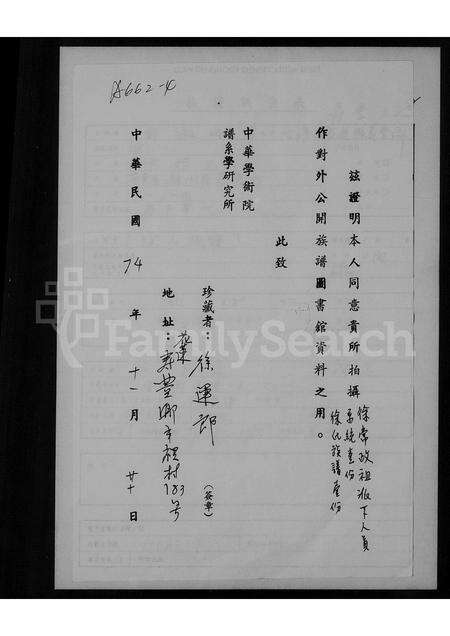 A662-4
茲證明本人同意貴所拍攝 徐常政祖派下人員系統壹份
徐氏族譜壹份
作對外公開族譜圖書館資料之用。
此致
中華學術院
譜系學研究所
珍藏者：徐運郎（簽章）
地址：花蓮壽豐鄉 村183号
中華民國74年十一月廿十日
FamilySearch